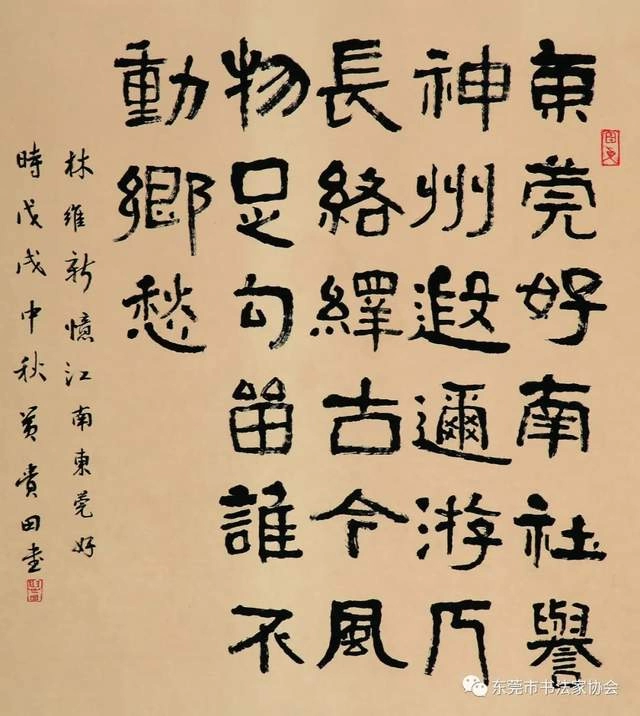 東莞好南社譽
神州遐邇游人
長絡繹古今風
物足勾留誰不
動鄉愁
林維新憶江南東莞好
時戊戌中秋黃貴田書
东莞市书法家协会